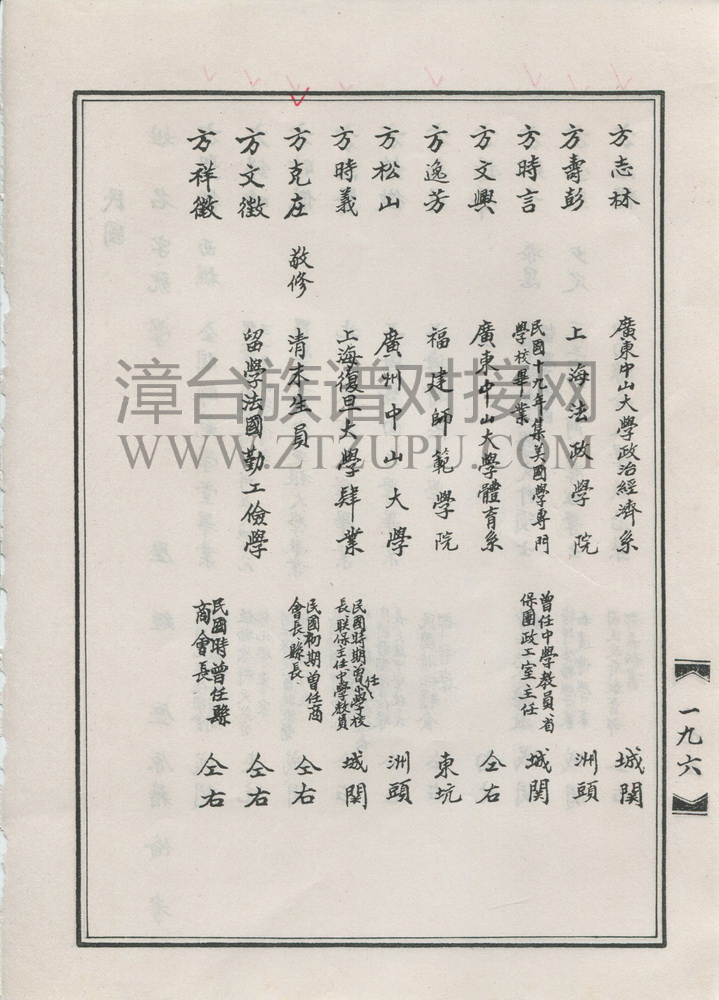 方志林 廣東中山大學政治經濟系 城関
方壽彭 上海法政學院 洲頭
方時言 民國十九年集美國學專門學校畢業 曾任中學教員、省保團政工室主任 城関
方文興 廣東中山大學體育系 仝右
方逸芳 福建師範學院 東坑
方松山 廣州中山大學 洲頭
方時義 上海復旦大學肆業 民國時期曾任小學校長聯保主任中學教員 城関
方克庄 敬修 清末生員 民國初期曾任商會長縣長 仝右
方文徵 留學法國勤工儉學 仝右
方祥徵 民國時曾任縣商會長 仝右
一九六
漳台族谱对接网
WWW.ZTZUPU.COM